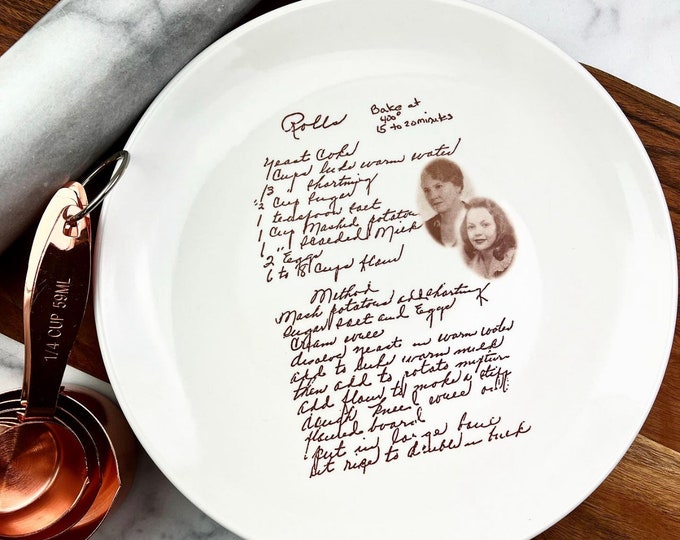 Rolls
Bake at
400°
15 to 20 minutes
Yeast Cake
Cups luke warm water
/3 " Shortning
Cup Sugar
1 teaspoon salt
1 Cup Mashed potatoes
1 " Scalded Milk
2 Eggs
6 to 8 Cups flour
Method
Mash potatoes add shortning
Sugar salt and Eggs
Cream well
disolve yeast in warm water
add to luke warm milk
then add to potato mixture
add flour to make a stiff
dough knee well on
floured board
put in large bowl
let rise to double in bulk
1/4 CUP 59ML